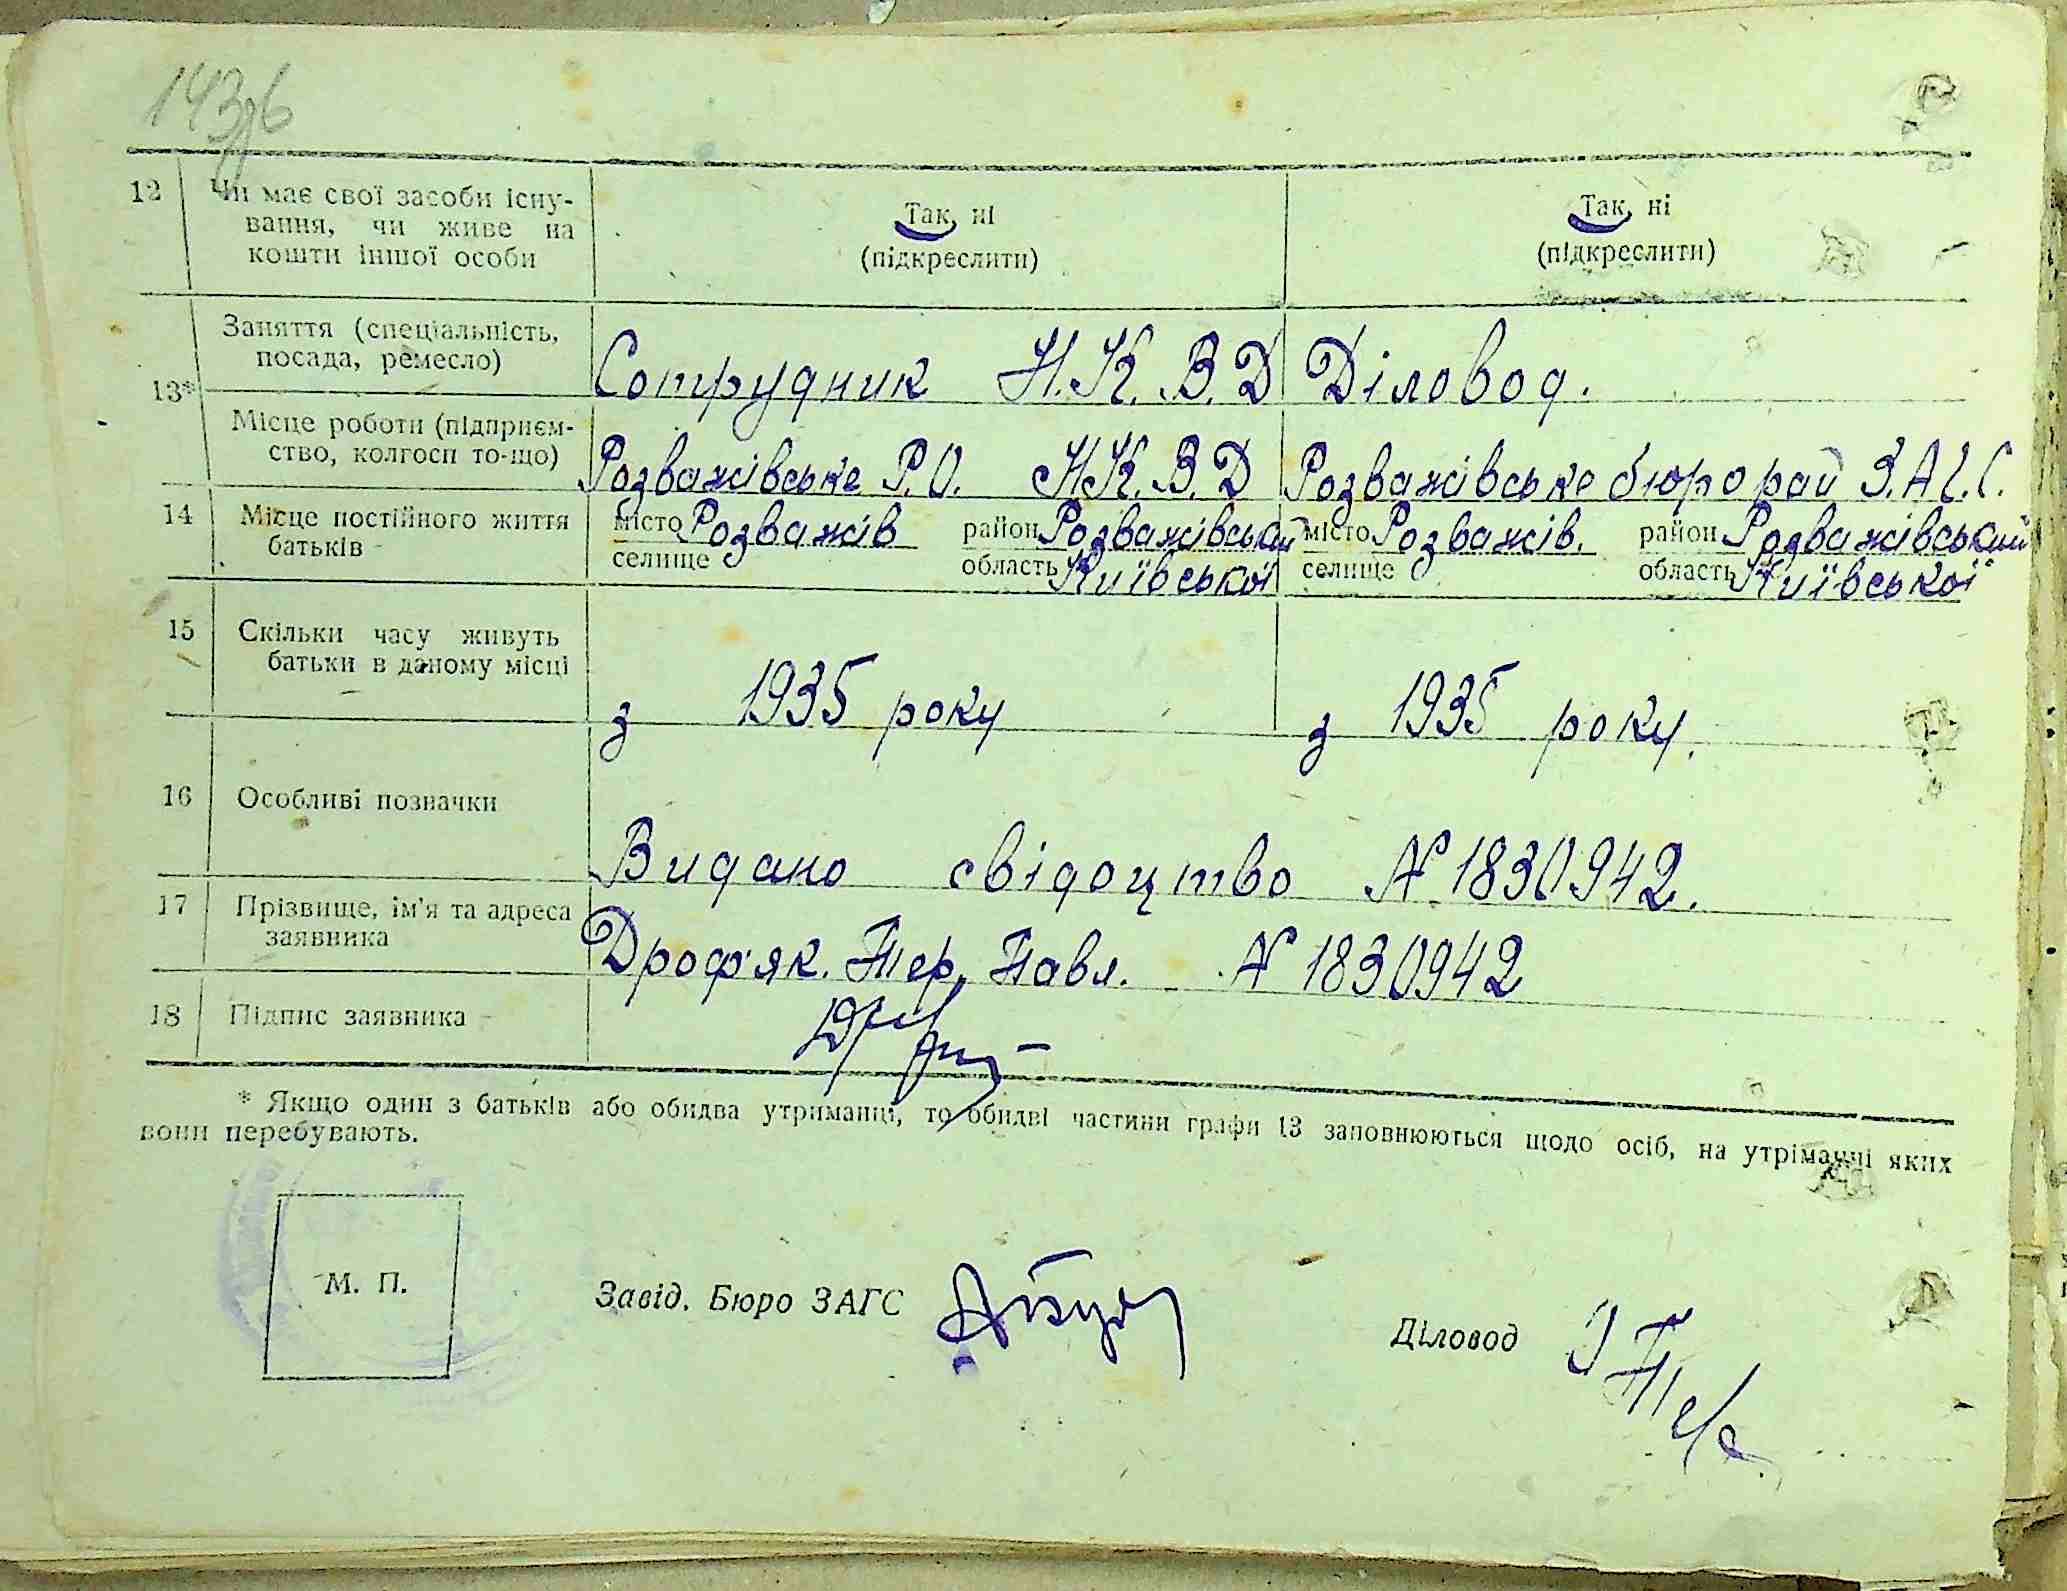 143
12 Чи має свої засоби існу- Так, ні Так, ні
вання, чи живе на (підкреслити) (підкреслити)
кошти іншої особи
13* Заняття (спеціальність, посада, ремесло) Сотрудник Н.К.В.Д Діловод.
Місце роботи (підприєм-
ство, колгосп то-що) Розважівське Р.О. НК.В.Д Розважівське бюро рай З.А.Г.С.
14 Місце постійного життя місто Розважів район Розважівський місто Розважів. район Розважівський
батьків селище область Київської селище область Київської
15 Скільки часу живуть
батьки в даному місці з 1935 року з 1935 року.
16 Особливі позначки
Видано свідоцтво № 1830942.
17 Прізвище, ім'я та адреса
заявника Дроф'як. Тер. Павл. № 1830942
18 Підпис заявника
* Якщо один з батьків або обидва утриманці, то обидві частини графи 13 заповнюються щодо осіб, на утріманні яких
вони перебувають.
М. П.
Завід. Бюро ЗАГС
Діловод